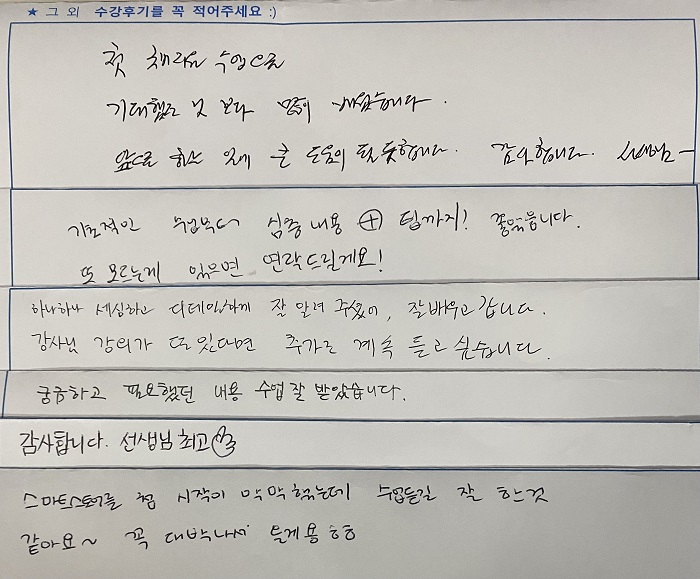 ★ 그 외 수강후기를 꼭 적어주세요 :)
첫 수업으로
기대했던 것 보다 많이 배웠습니다.
앞으로 하는 일에 큰 도움이 될 듯합니다. 감사합니다.
기초적인 수업부터 심층내용 ⊕ 팁까지! 좋았습니다.
또 모르는게 있으면 연락드릴게요!
하나하나 세심하고 디테일하게 잘 알려 주셔서, 잘배우고 갑니다.
강사님 강의가 또 있다면 추가로 계속 듣고 싶습니다.
궁금하고 필요했던 내용 수업 잘 받았습니다.
감사합니다. 선생님 최고
스마트스토어를 첨 시작이 막막했는데 수업듣길 잘 한것
같아요~ 꼭 대박나서 올게용 ㅎㅎ